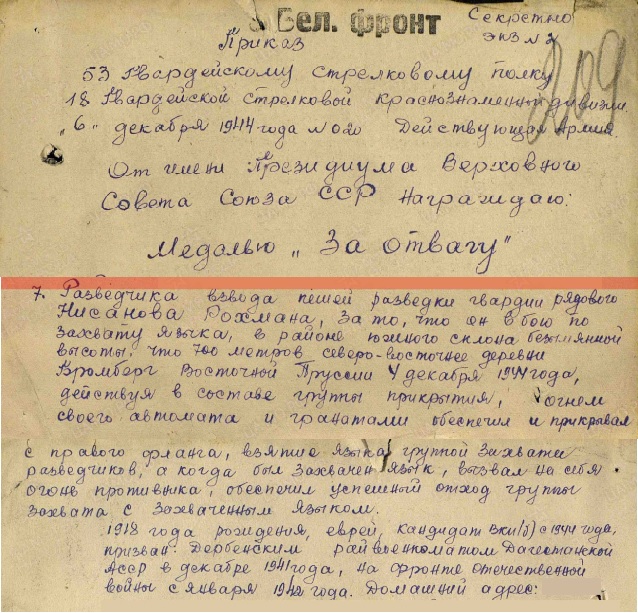 3 Бел. фронт
Секретно
экз № 2
Приказ
209
53 Гвардейскому стрелковому полку
18 Гвардейской стрелковой краснознаменной дивизии.
„6" декабря 1944 года № 020 Действующая Армия.
От имени Президиума Верховного
Совета Союза ССР награждаю:
Медалью „За отвагу"
7. Разведчика взвода пешей разведки гвардии рядового
Нисанова Рохмана, за то, что он в бою по
захвату языка, в районе южного склона безымянной
высоты, что 700 метров северо-восточнее деревни
Вромберг Восточной Пруссии 4 декабря 1944 года,
действуя в составе группы прикрытия, огнем
своего автомата и гранатами обеспечил и прикрывал
с правого фланга, взятие языка группой захвата
разведчиков, а когда был захвачен язык, вызвал на себя
огонь противника, обеспечил успешный отход группы
захвата с захваченным языком.
1918 года рождения, еврей, кандидат ВКП(б) с 1944 года,
призван Дербенским райвоенкоматом Дагестанской
АССР в декабре 1941 года, на фронте отечественной
войны с января 1942 года. Домашний адрес: